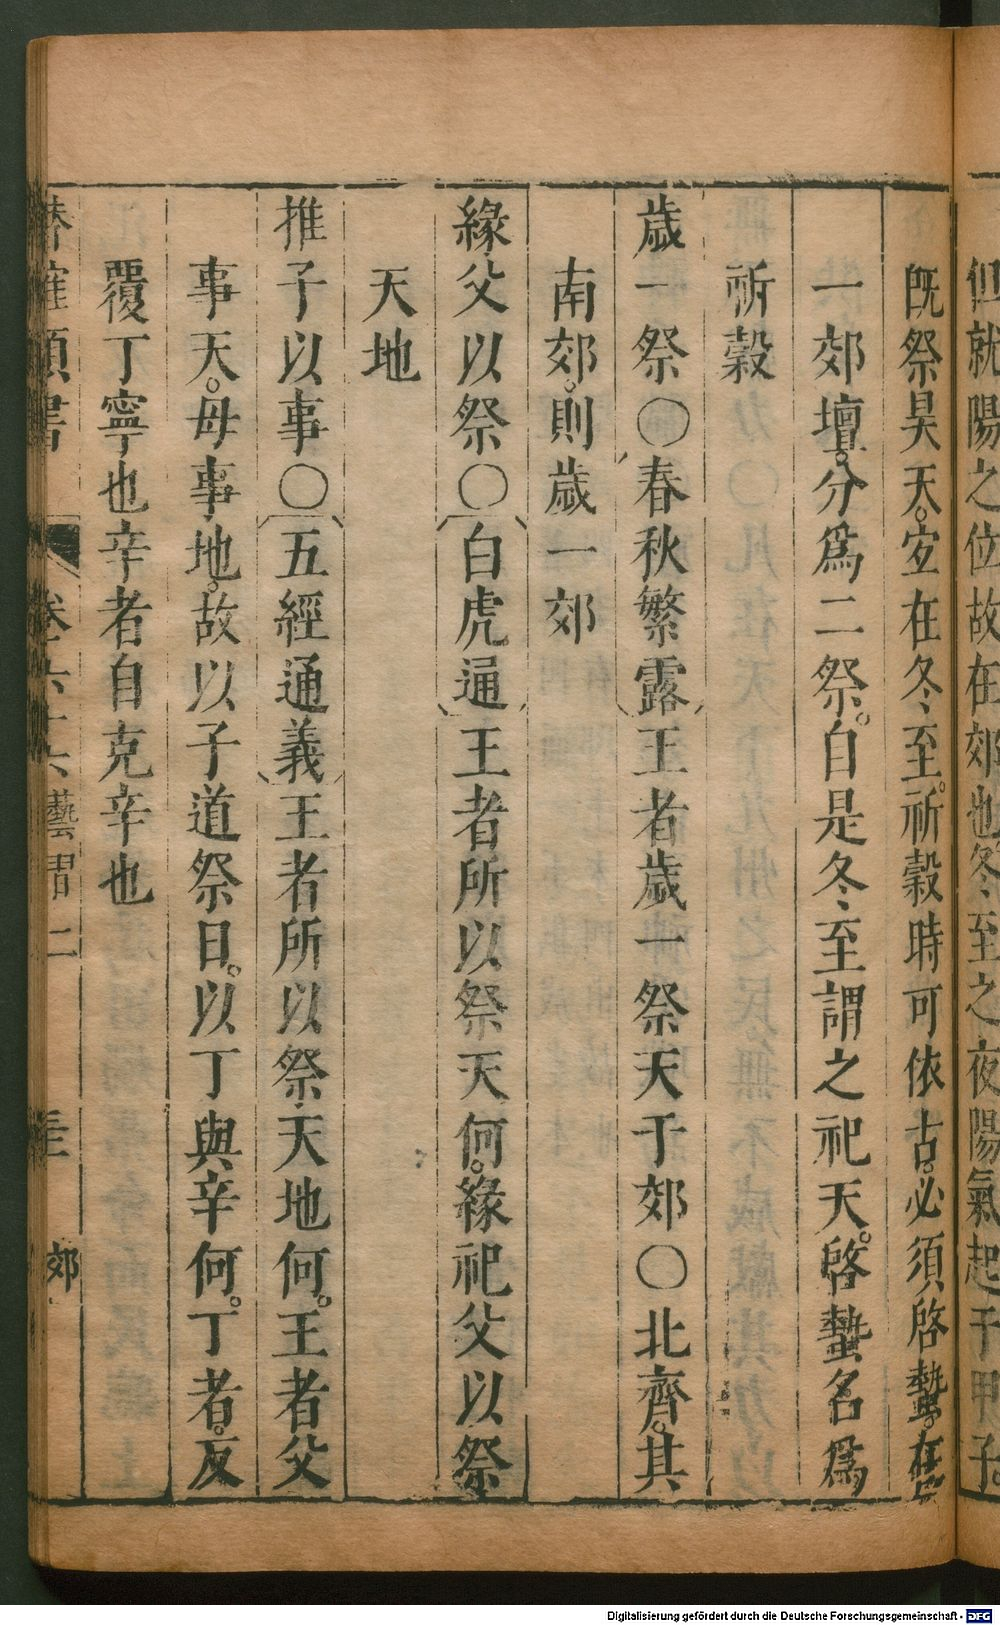 但就陽之位故在郊也冬至之夜陽氣起于甲子
既祭昊天宜在冬至祈穀時可依古必須啓蟄在
一郊壇分爲二祭自是冬至謂之祀天啓蟄名爲
祈穀
歲一祭〇春秋繁露王者歲一祭天于郊〇北齊其
南郊則歲一郊
緣父以祭〇白虎通王者所以祭天何緣祀父以祭
天地
推子以事〇五經通義王者所以祭天地何王者父
事天母事地故以子道祭日以丁與辛何丁者反
覆丁寧也辛者自克辛也
卷六十六藝習二 郊
Digitalisierung gefördert durch die Deutsche Forschungsgemeinschaft - DFG